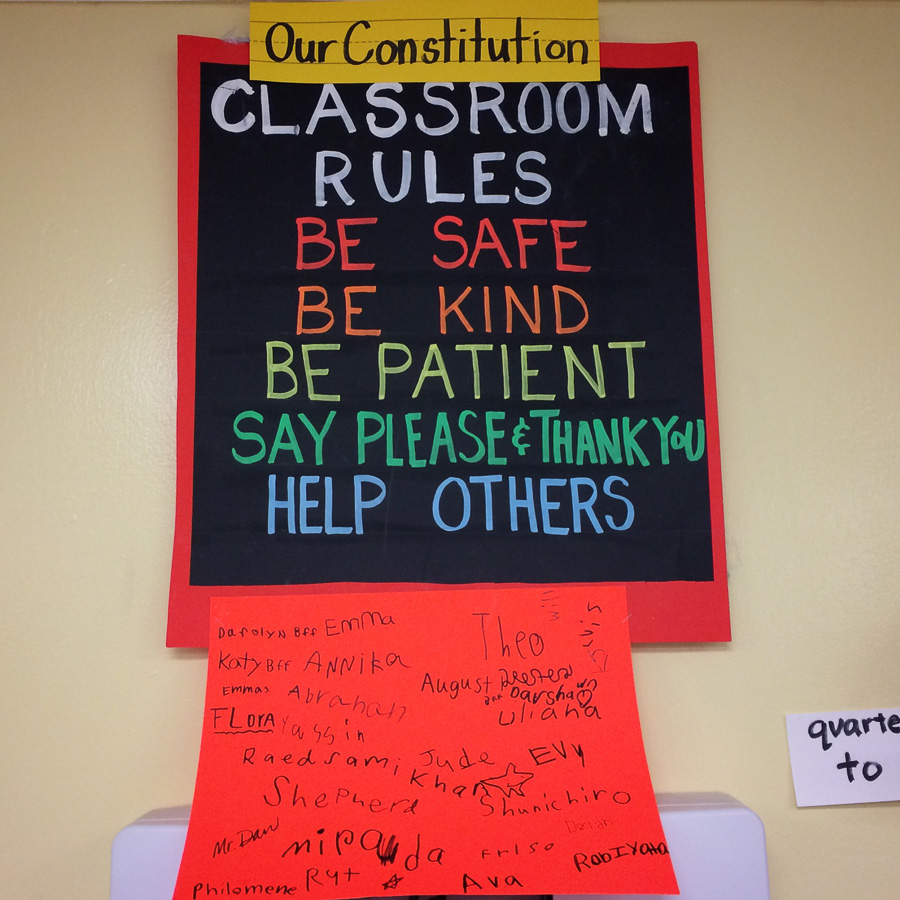 Our Constitution
CLASSROOM
RULES
BE SAFE
BE KIND
BE PATIENT
SAY PLEASE & THANK YOU
HELP OTHERS
Darolyn Bff EMMa
Theo
Katy Bff ANNIKA
Emmas Abrahan
August
BFF Darsha
FLora Yassin
uliana
Raed sami Jude EVy
Khan
Shepherd Shunichiro
Mr. Daw miranda Erlso RobIyata
Philomene Ryt Ava
quarte
to